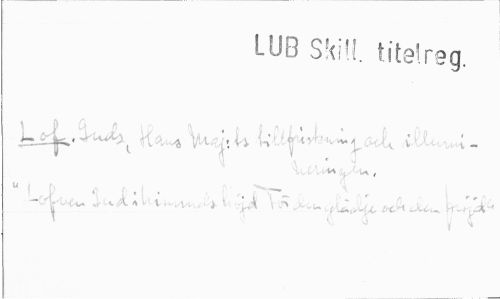 LUB Skill. titelreg.
Lof. Guds, Hans Maj:ts tillfriskning och illumi-
neringen.
"Lofven Gud i himmels höjd För den glädje och den fröjd"